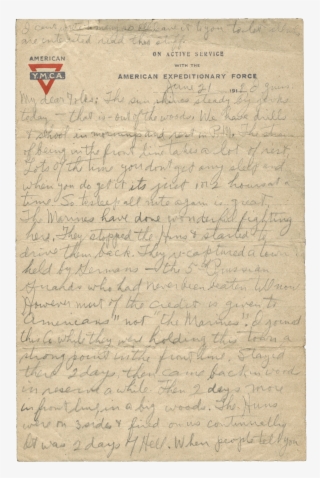 AMERICAN
YMCA
ON ACTIVE SERVICE
WITH THE
AMERICAN EXPEDITIONARY FORCE
June 21 191
My dear Folks: The sun shines steady
today, — that is — out of the woods. We have drill
& school in mornings and rest in P.M. The strain
of being in the front line takes a lot of rest.
Lots of the time you don't get any sleep and
when you do get it its just 1 or 2 hours at a
time. So to sleep all nite again is great.
The Marines have done wonderful fighting
here. They stopped the Huns & started to
drive them back. They recaptured a town
held by Germans — the 5th Prussian
who had never been beaten
However most of the credit is given to
"Americans" not the "Marines". I joined
this Co. while they were holding this town a
strong point in the front line. Stayed
there 2 days then came back in wood
in reserve a while. Then 2 days more
in front line in a big woods. The Huns
were on 3 sides & fired on us continually.
It was 2 days of Hell. When people tell you